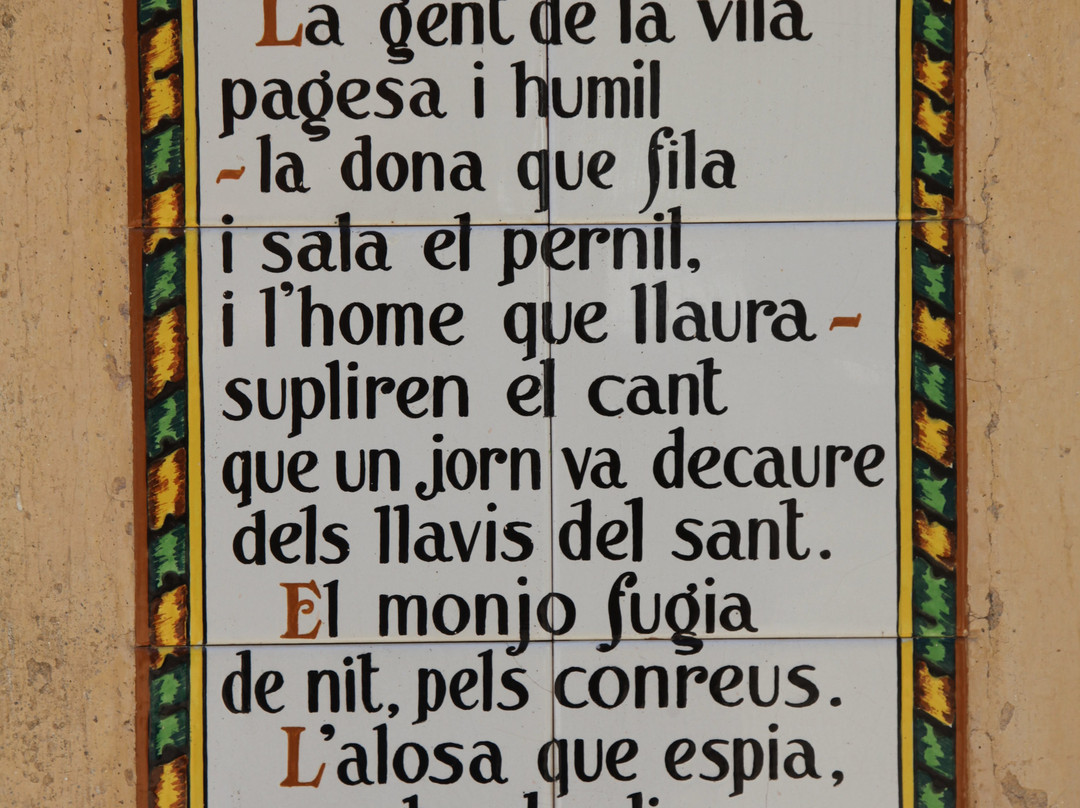 La gent de la vila
pagesa i humil
~ la dona que fila
i sala el pernil,
i l'home que llaura ~
supliren el cant
que un jorn va decaure
dels llavis del sant.
El monjo fugia
de nit, pels conreus.
L'alosa que espia,